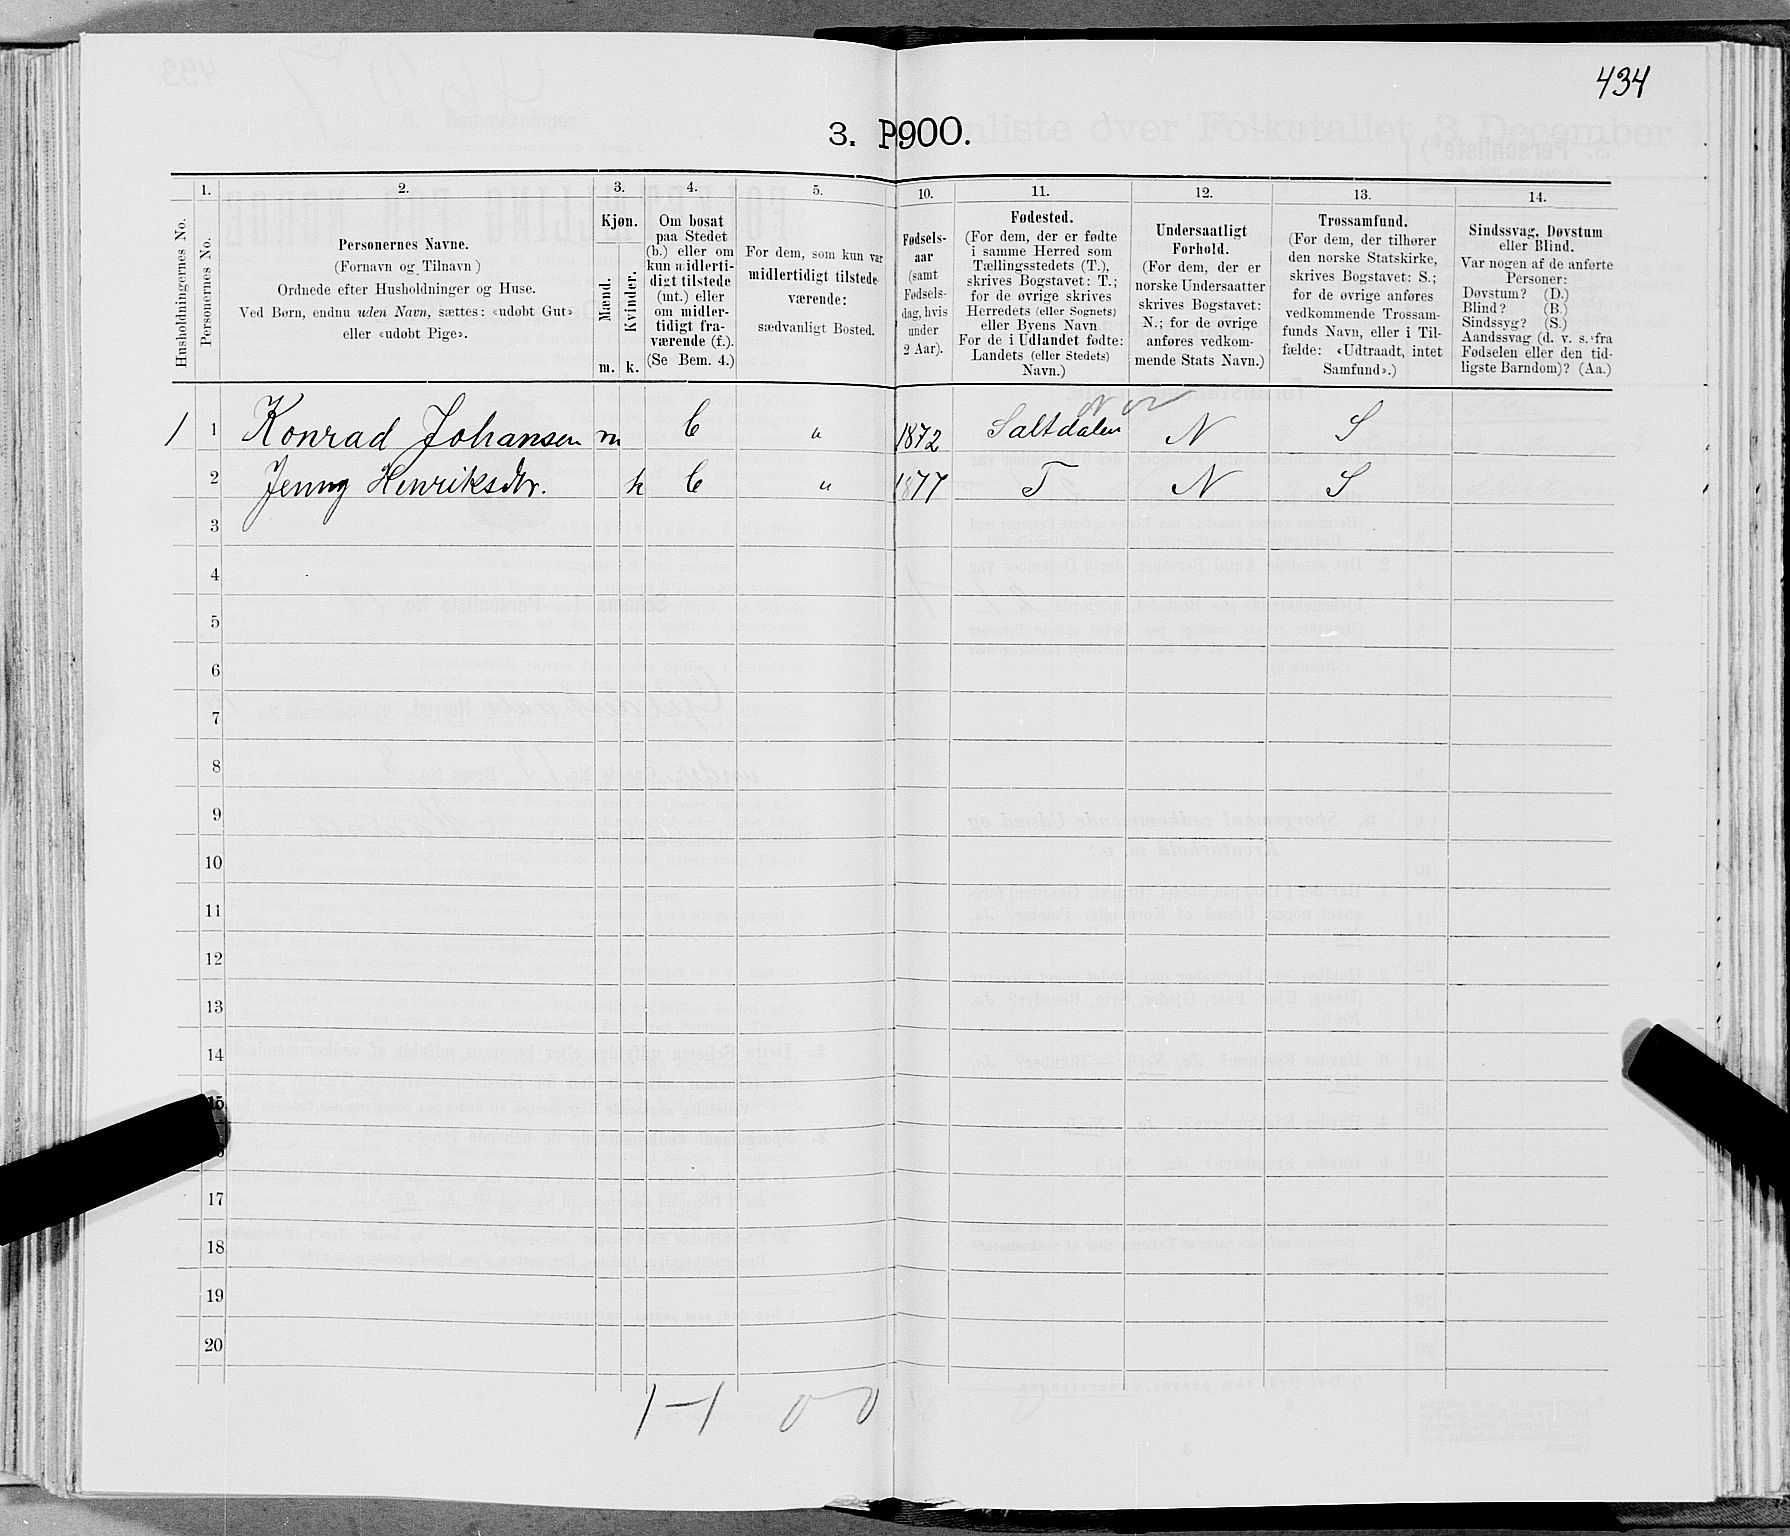 434
3. P900.
1. 2. 3. 4. 5. 10. 11. 12. 13. 14.
Husholdningernes No.
Personernes No.
Personernes Navne.
(Fornavn og Tilnavn)
Ordnede efter Husholdninger og Huse.
Ved Børn, endnu uden Navn, sættes: «udøbt Gut»
eller «udøbt Pige».
Kjøn.
Mænd.
Kvinder.
m. k.
Om bosat
paa Stedet
(b.) eller om
kun midlerti-
digt tilstede
(mt.) eller
om midler-
tidigt fra-
værende (f.).
(Se Bem. 4.)
For dem, som kun var
midlertidigt tilstede-
værende:
sædvanligt Bosted.
Fødsels-
aar
(samt
Fødsels-
dag, hvis
under
2 Aar).
Fødested.
(For dem, der er fødte
i samme Herred som
Tællingsstedets (T.),
skrives Bogstavet: T.;
for de øvrige skrives
Herredets (eller Sognets)
eller Byens Navn
For de i Udlandet fødte:
Landets (eller Stedets)
Navn.)
Undersaatligt
Forhold.
(For dem, der er
norske Undersaatter
skrives Bogstavet:
N.; for de øvrige
anføres vedkom-
mende Stats Navn.)
Trossamfund.
(For dem, der tilhører
den norske Statskirke,
skrives Bogstavet: S.;
for de øvrige anføres
vedkommende Trossam-
funds Navn, eller i Til-
fælde: «Udtraadt, intet
Samfund».)
Sindssvag, Døvstum
eller Blind.
Var nogen af de anførte
Personer:
Døvstum? (D.)
Blind? (B.)
Sindssyg? (S.)
Aandssvag (d. v. s. fra
Fødselen eller den tid-
ligste Barndom)? (Aa.)
1 1 Konrad Johansen m b " 1872 Saltdalen N S
2 Jenny Henriksdtr. k b " 1877 T N S
3
4
5
6
7
8
9
10
11
12
13
14
15
17
18
19
20
1-1 0 0